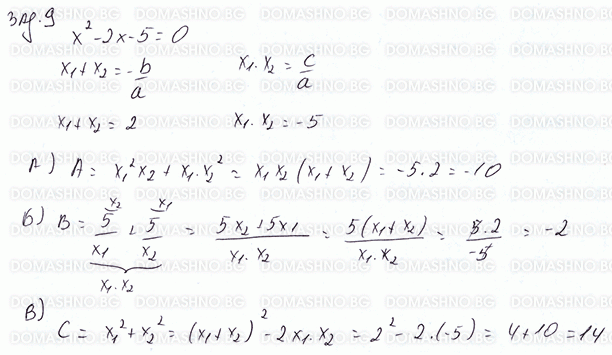 Зад.9
x² - 2x - 5 = 0
x₁ + x₂ = -b/a    x₁ . x₂ = c/a
x₁ + x₂ = 2    x₁ . x₂ = -5
А) A = x₁²x₂ + x₁.x₂² = x₁x₂(x₁+x₂) = -5.2 = -10
Б) B = 5/x₁ + 5/x₂ = (5x₂+5x₁)/(x₁.x₂) = 5(x₁+x₂)/(x₁.x₂) = 5.2/-5 = -2
x₂ x₁
x₁.x₂
В)
C = x₁²+x₂² = (x₁+x₂)² - 2x₁.x₂ = 2² - 2.(-5) = 4+10 = 14
DOMASHNO.BG